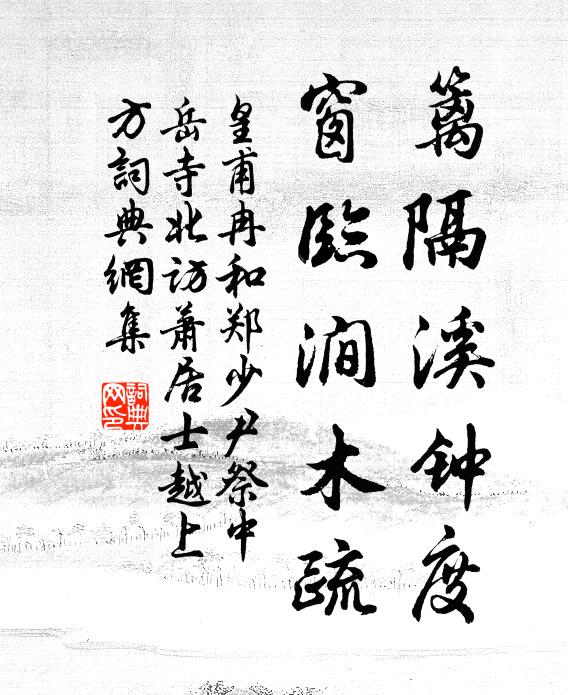 篱隔溪钟度
窗临涧木疏
皇甫冉和郑少尹祭中
岳寺北访萧居士越上
方词典网集
词典网印